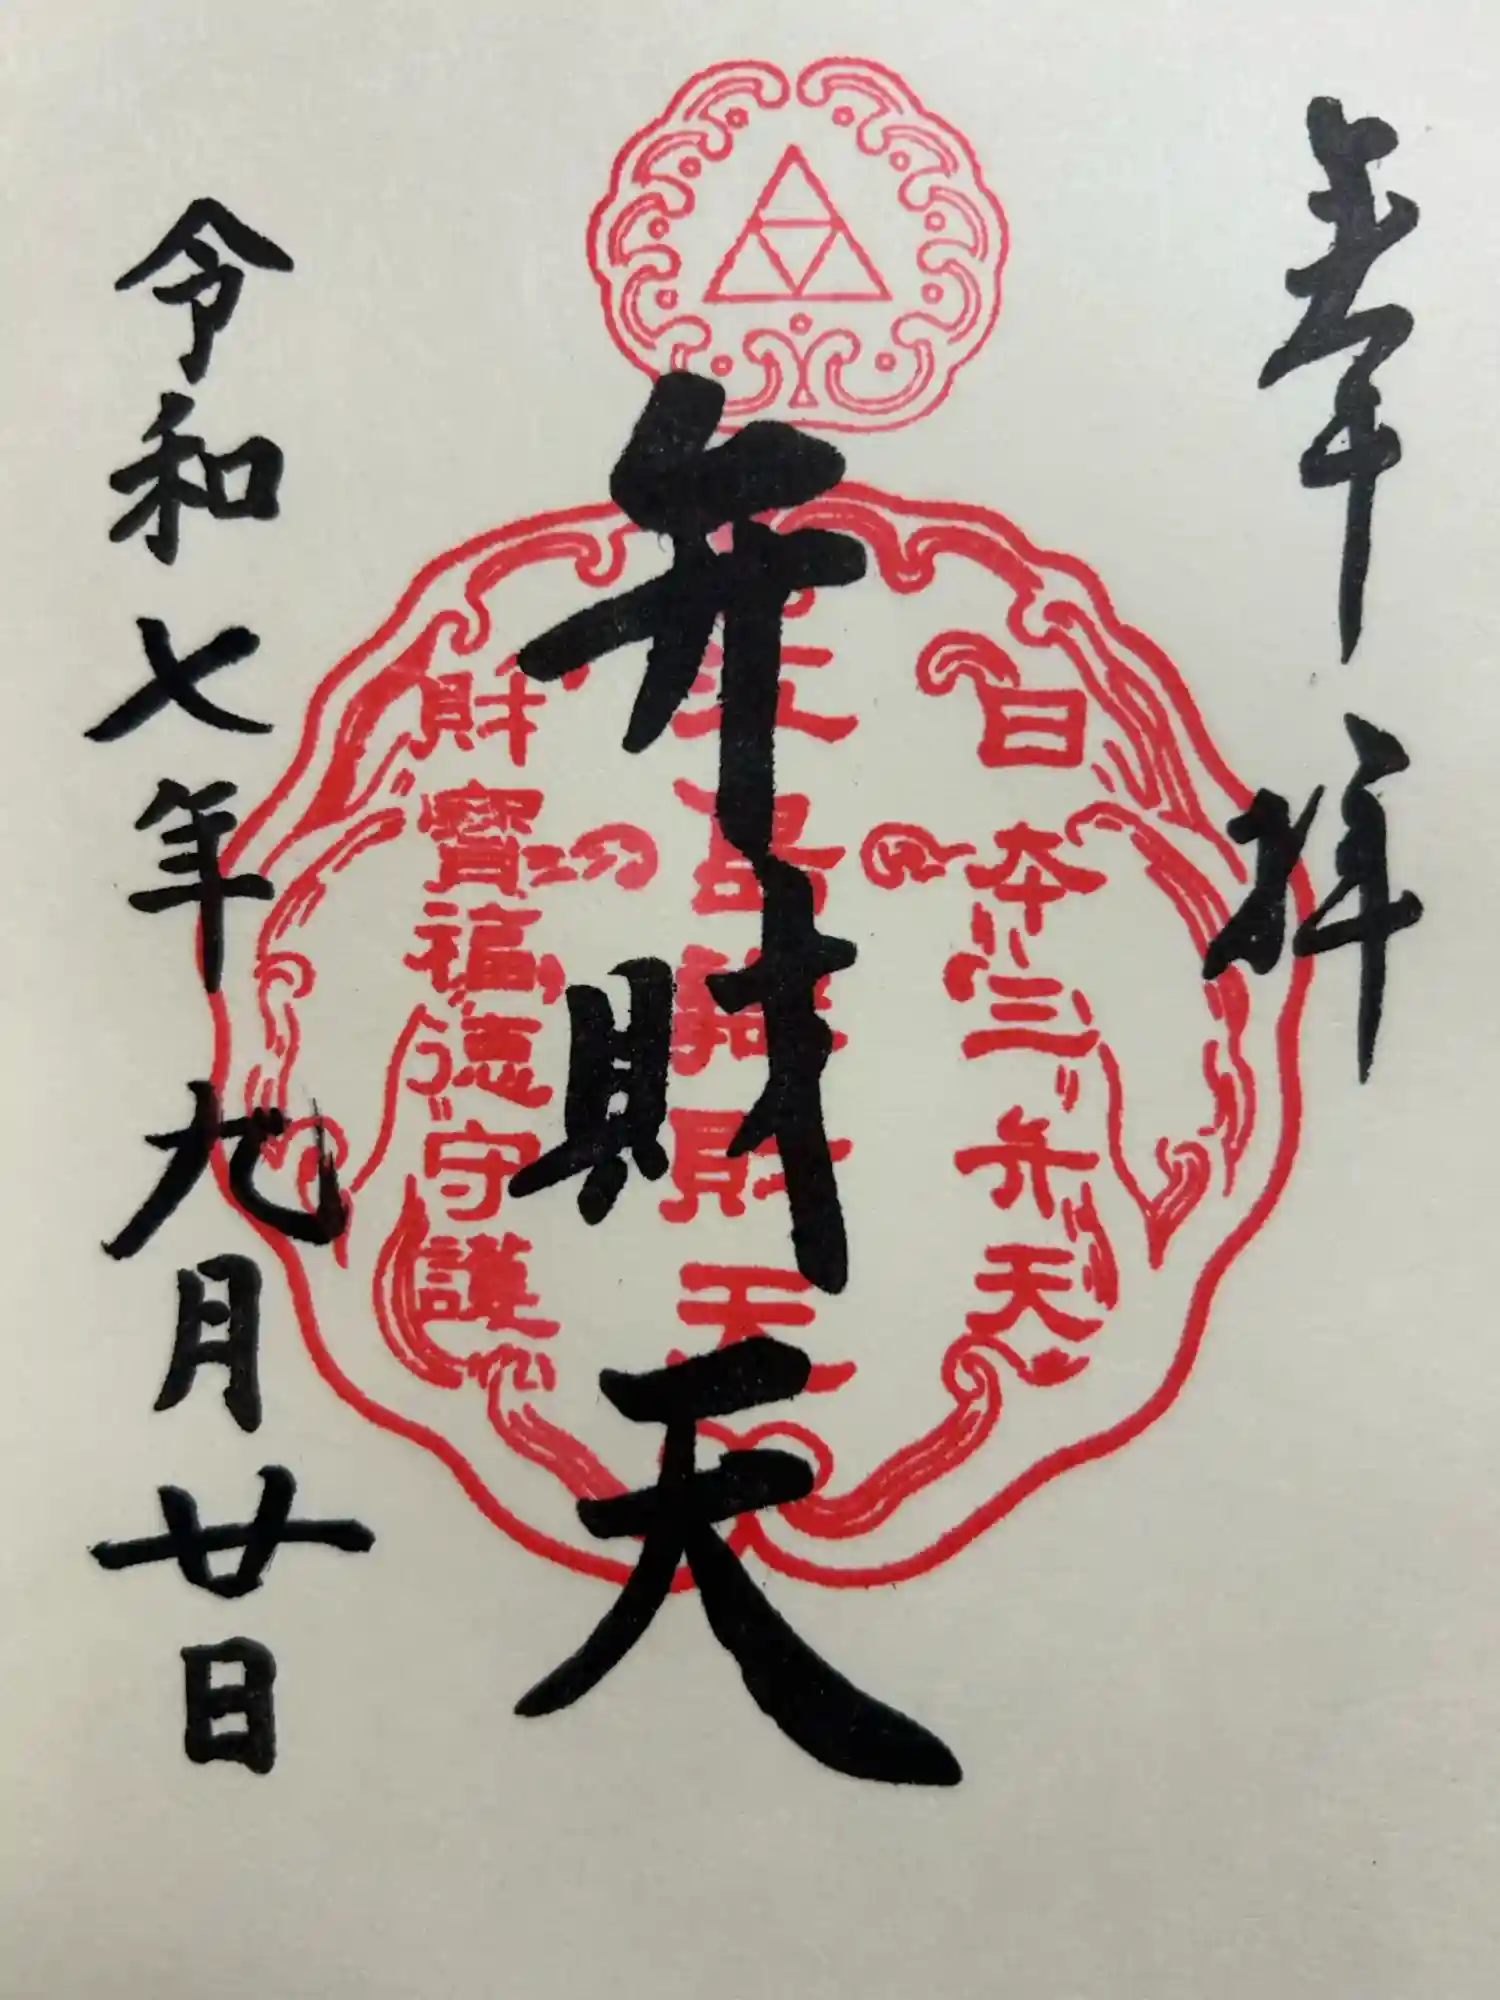 奉拝
日本三弁天
江島辨財天
弁財天
財寶福徳守護
令和七年九月廿日